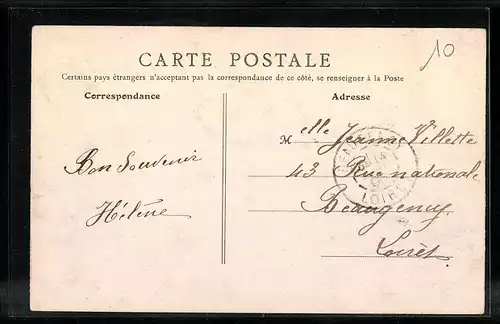 10
CARTE POSTALE
Certains pays étrangers n'acceptant pas la correspondance de ce côté, se renseigner à la Poste
Correspondance
Adresse
Bon Souvenir
Hélène
Melle Jeanne Villette
43 Rue nationale
Beaugency
Loiret.
LOIRET